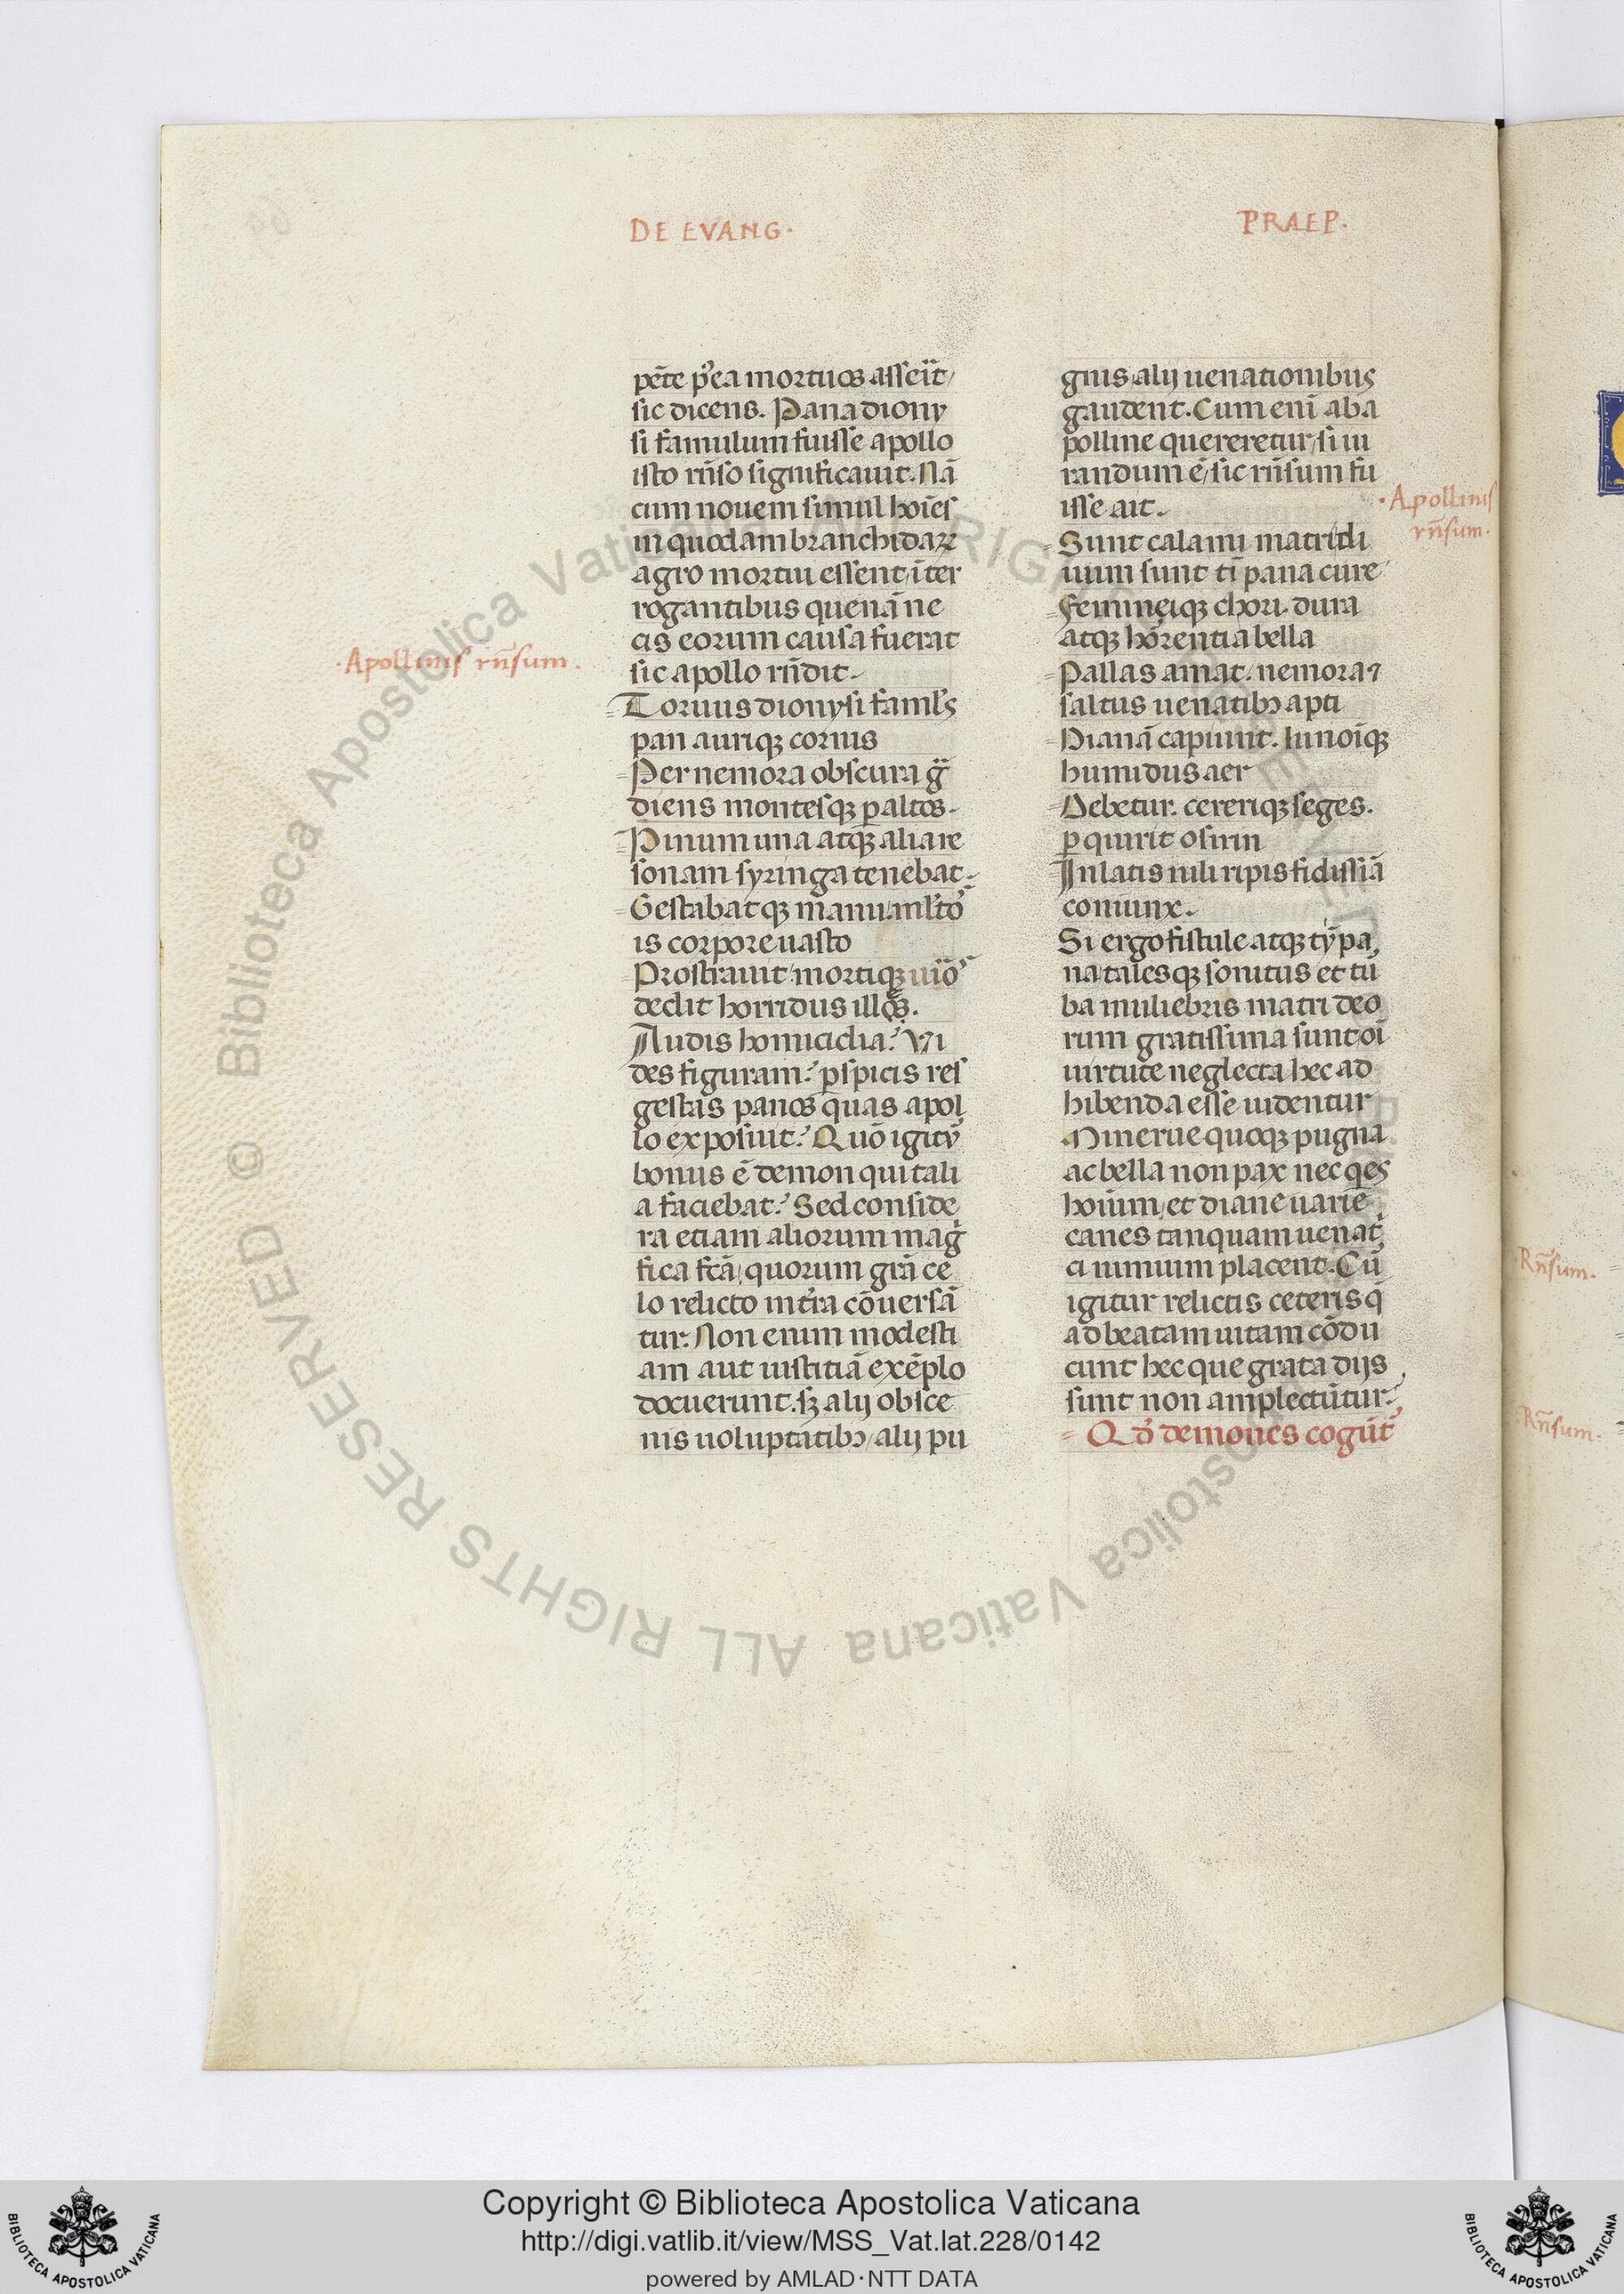 DE EVANG.
PRAEP.
pe᷑te p᷑ea mortuos asseru᷑t/
sic dicens. Pana diony
si famulum fuisse apollo
isto rn̄so significauit. Nā
cum nouem simul hoīes
in quodam branchidaꝝ
agro mortui essent/ īter
rogantibus quenā ne
cis eorum causa fuerat
sic apollo rn̄dit.
·Apollinis rn̄sum.
Toruus dionysi faml's
pan auriqꝫ cornis
Per nemora obscura g᷑
diens montesqꝫ ꝑ altos.
Pinum una atqꝫ alia re
sonam syringa tenebat.
Gestabatqꝫ manu ml'to
is corpore uasto
Prostrauit/ mortiqꝫ uiō
dedit horridus illos.
Audis homicidia? Vi
des figuram? ꝑspicis res
gestas panos quas apol
lo exposuit? Quō igitr̄
bonus ē demon qui tali
a faciebat? Sed conside
ra etiam aliorum mag
fica fcā/ quorum grā ce
lo relicto in tr̄ra cōuersā
tur. Non enim modesti
am aut iustitiā exēplo
docuerunt. sꝫ alij obsce
nis uoluptatibꝫ/ alij pu
gnis alij uenationibus
gaudent. Cum enī ab a
polline quereretur/ si iu
randum ē/ sic rn̄sum fu
isse ait.
·Apollinis
rn̄sum.
Sunt calami matri di
uum sunt tī pana cure
Femineiqꝫ chori. dura
atqꝫ horrentia bella
Pallas amat. nemora ⁊
saltus uenatibꝫ apti
Dianā capiunt. Iunoīqꝫ
humidus aer
Debetur. cereriqꝫ seges.
ꝑquirit osirin
In latis nili ripis fidissiā
coniunx.
Si ergo fistule atqꝫ tȳpa
na talesqꝫ sonitus et tu᷑
ba muliebris matri deo
rum gratissima sunt/ oī
uirtute neglecta hec ad
hibenda esse uidentur
Minerue quoqꝫ pugna
ac bella non pax nec qes
hoīum/ et diane uarie
canes tanquam uenat
ci nimium placent. Cū
igitur relictis ceteris q
ad beatam uitam cōdu
cunt hec que grata dijs
sunt non amplectūtur?
Qd᷑ demones cogūt᷑
Rn̄sum.
Rn̄sum.
© Biblioteca Apostolica Vaticana ALL RIGHTS RESERVED
Copyright © Biblioteca Apostolica Vaticana
http://digi.vatlib.it/view/MSS_Vat.lat.228/0142
powered by AMLAD·NTT DATA
BIBLIOTECA APOSTOLICA VATICANA
BIBLIOTECA APOSTOLICA VATICANA